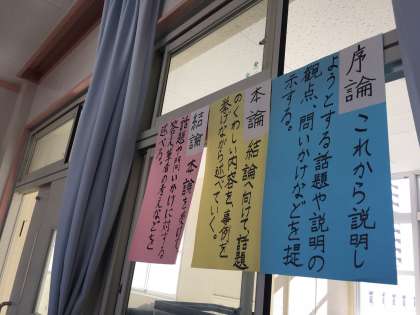 序論
これから説明し
ようとする話題や説明の
観点、問いかけなどを提
示する。
本論
結論へ向けて、話題
のくわしい内容を、事例を
挙げながら述べていく。
結論
本論を受けて、
話題や問いかけに対する
答え、筆者の考えなどを
述べる。